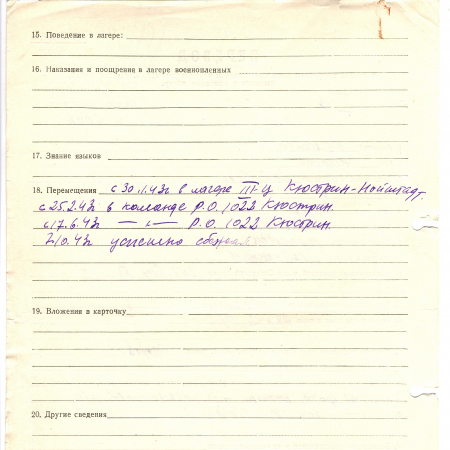 15. Поведение в лагере:
16. Наказания и поощрения в лагере военнопленных
17. Знание языков
18. Перемещения с 30.1.43г в лагере III-Ц Кюстрин-Нойштадт,
с 25.2.43 в команде Р.О. 1022 Кюстрин.
с 17.6.43г — „ — Р.О. 1022 Кюстрин.
10.43г успешно сбежал
19. Вложения в карточку
20. Другие сведения